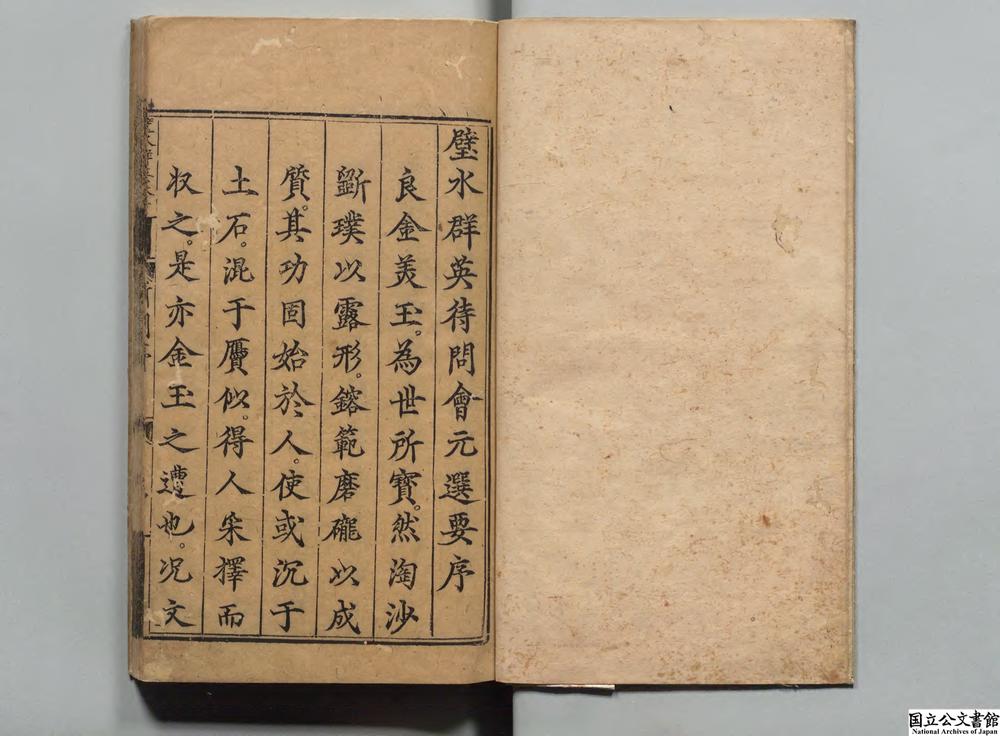 璧水群英待問會元選要序
良金美玉。為世所寳。然淘沙
斵璞以露形。鎔範磨礲以成
質。其功固始於人。使或沉于
土石。混于贗似。得人采擇而
収之。是亦金玉之遭也。况文
国立公文書館
National Archives of Japan